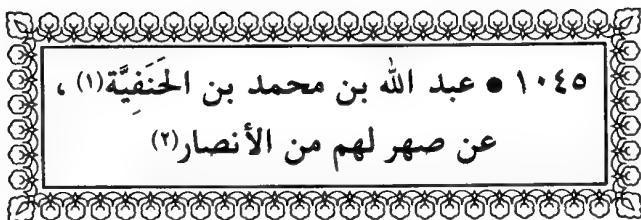 ١٠٤٥ ● عبد الله بن محمد بن الحَنَفِيَّة(١) ،
عن صهر لهم من الأنصار(٢)